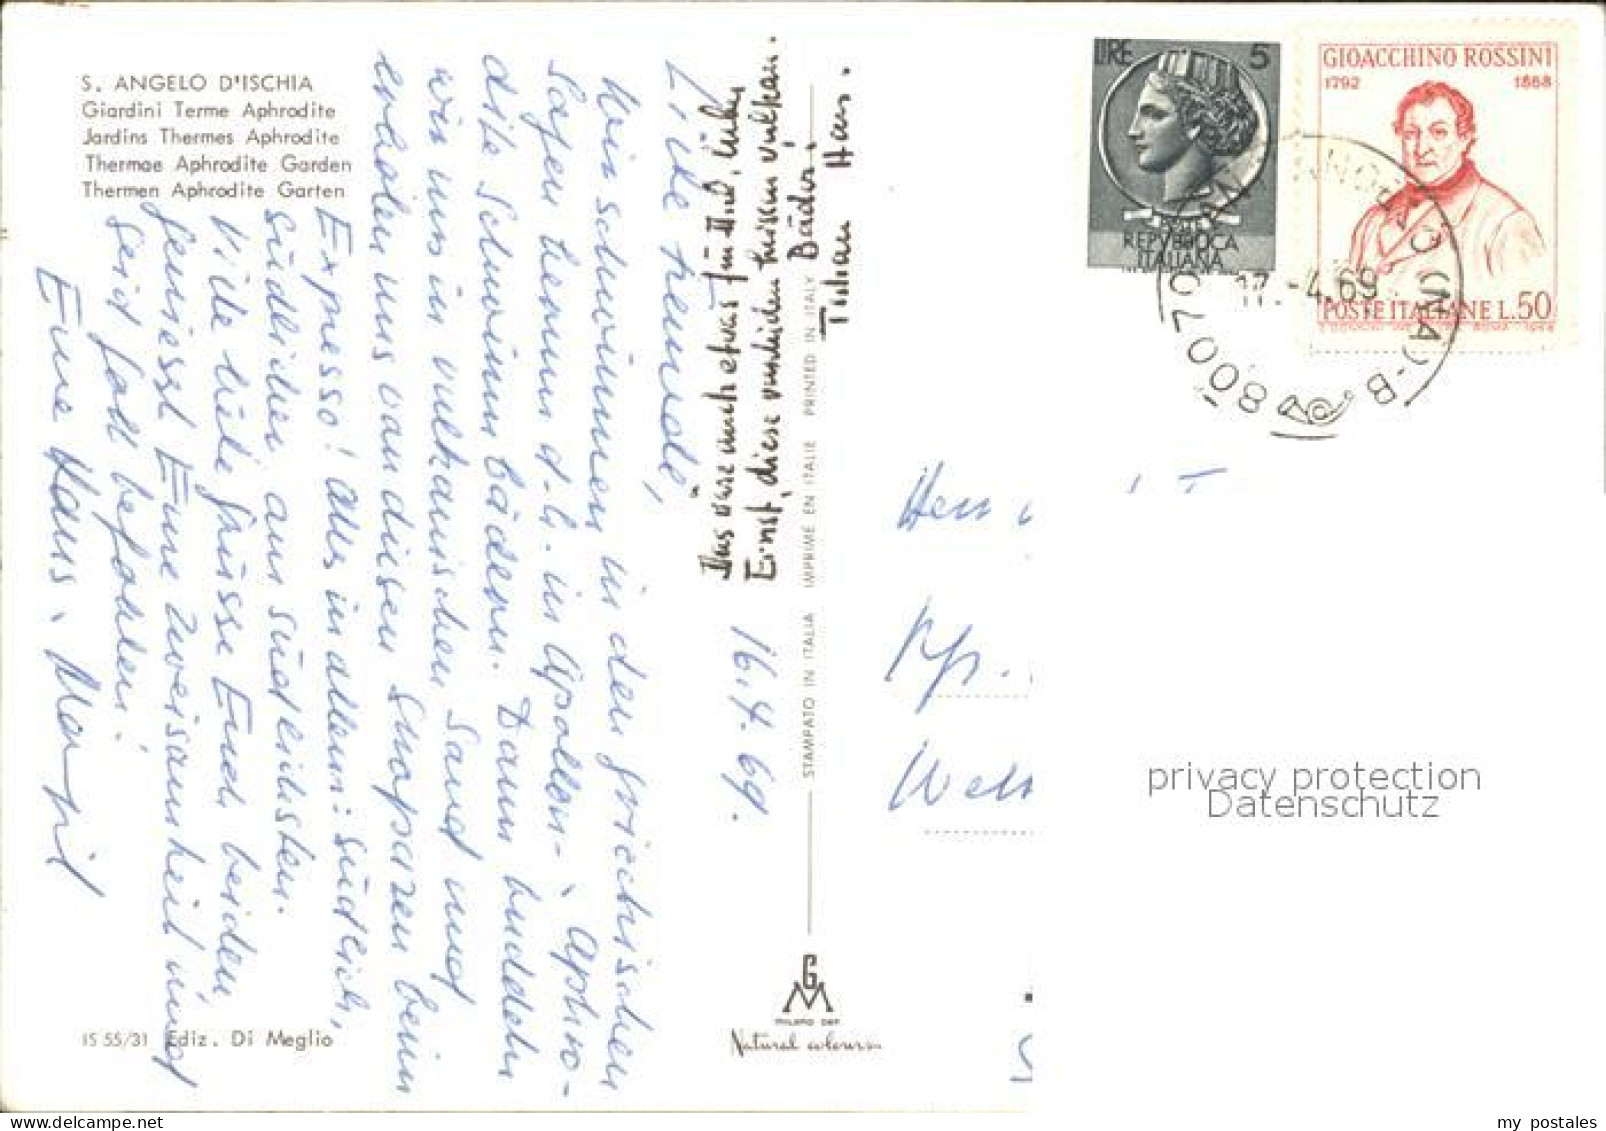 S. ANGELO D'ISCHIA
Giardini Terme Aphrodite
Jardins Thermes Aphrodite
Thermae Aphrodite Garden
Thermen Aphrodite Garten
16.4.69.
Liebe Freunde,
Wir schwimmen in den griechischen
Sagen herum d.h. in Apollon-, Aphro-
dite Schwimmbädern. Dann buddeln
wir uns in vulkanischen Sand und
erholen uns von diesen Strapazen beim
Expresso! Alles in allem: südlich,
südlicher, am südlichsten.
Viele liebe Grüsse Euch beiden,
geniesst Eure Zweisamkeit und
seid Gott befohlen!
Eure Hans,
Das wäre auch etwas für Dich, lieber
Ernst, diese heissen vulkan.
Bäder!
Hans.
STAMPATO IN ITALIA IMPRIME EN ITALIE PRINTED IN ITALY
IS 55/31 Ediz. Di Meglio
GM
MILANO DEP
Natural colours
LIRE 5
REPVBBLICA
ITALIANA
GIOACCHINO ROSSINI
1792 1868
POSTE ITALIANE L.50
17.-4.69
80070 (NA)-B.
Herrn
Wett
privacy protection
Datenschutz
my postales